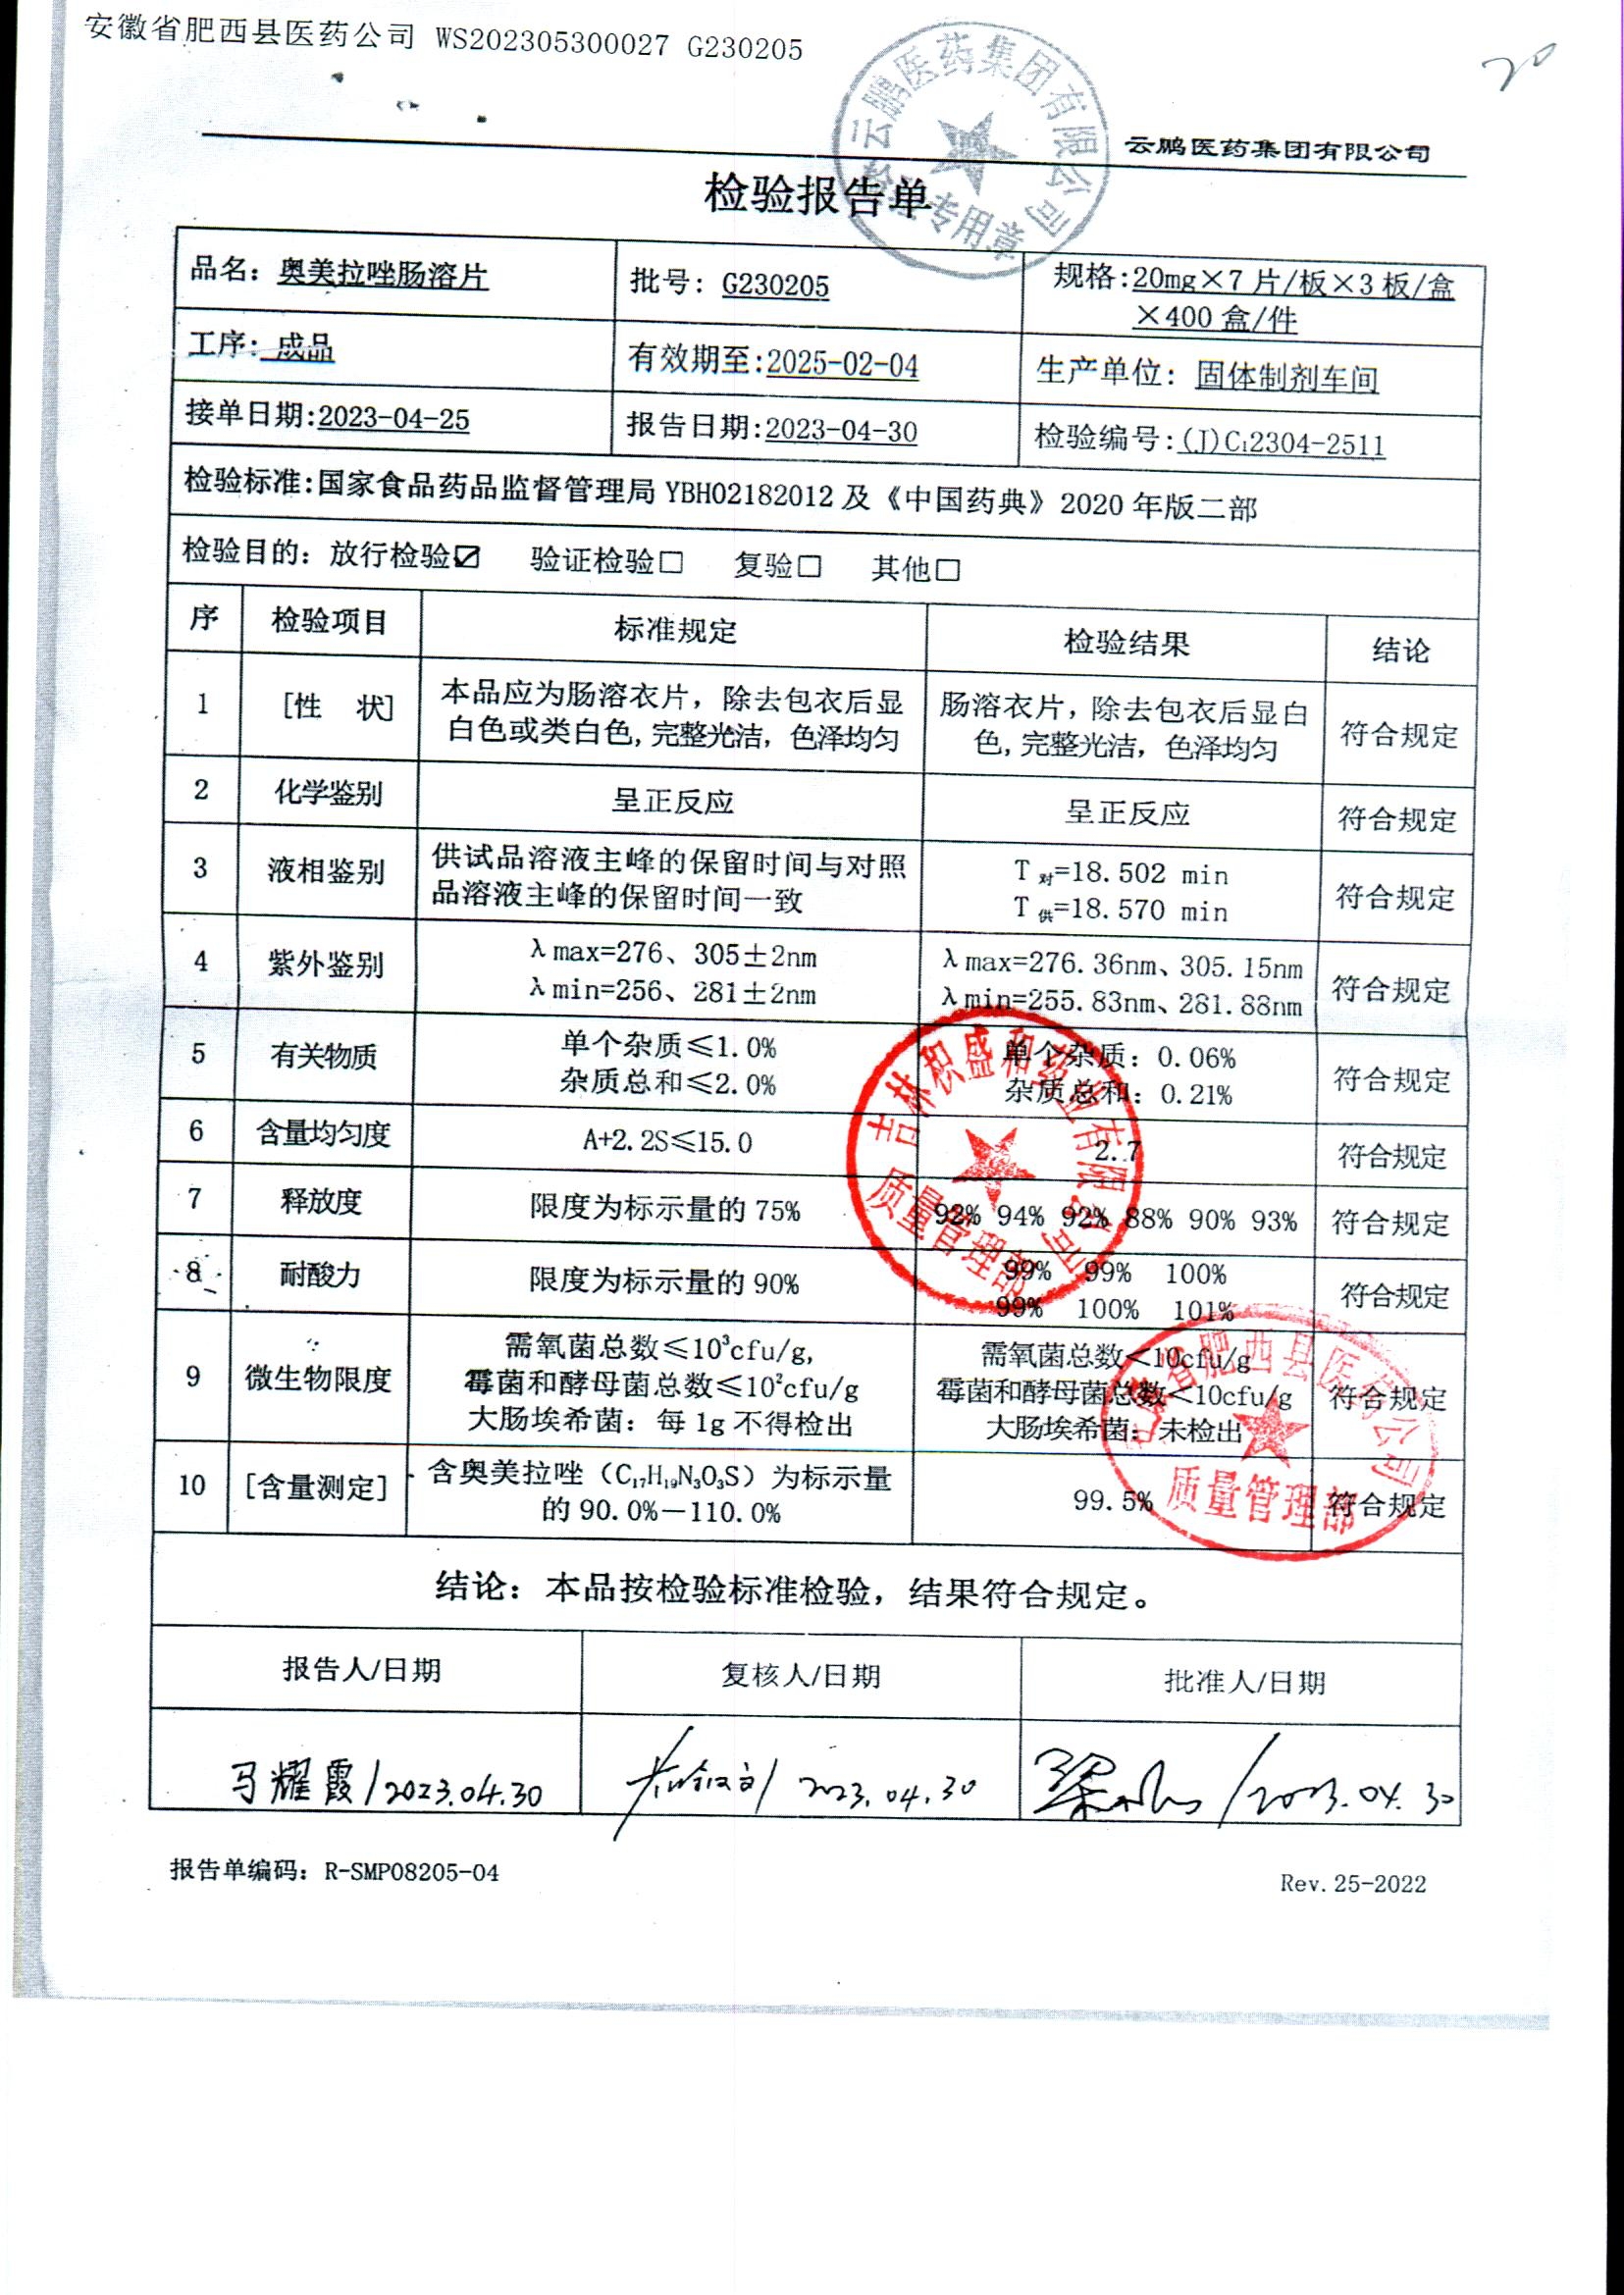 安徽省肥西县医药公司 WS202305300027 G230205
20
云鹏医药集团有限公司
云鹏医药集团有限公司
检验专用章
检验报告单
品名：奥美拉唑肠溶片
批号：G230205
规格:20mg×7片/板×3板/盒
×400盒/件
工序：成品
有效期至:2025-02-04
生产单位：固体制剂车间
接单日期:2023-04-25
报告日期:2023-04-30
检验编号:(J)C₁2304-2511
检验标准:国家食品药品监督管理局YBH02182012及《中国药典》2020年版二部
检验目的：放行检验☑ 验证检验□ 复验□ 其他□
序 检验项目 标准规定 检验结果 结论
1 [性 状] 本品应为肠溶衣片，除去包衣后显 肠溶衣片，除去包衣后显白 符合规定
白色或类白色,完整光洁，色泽均匀 色,完整光洁，色泽均匀
2 化学鉴别 呈正反应 呈正反应 符合规定
3 液相鉴别 供试品溶液主峰的保留时间与对照 T对=18.502 min 符合规定
品溶液主峰的保留时间一致 T供=18.570 min
4 紫外鉴别 λmax=276、305±2nm λmax=276.36nm、305.15nm 符合规定
λmin=256、281±2nm λmin=255.83nm、281.88nm
5 有关物质 单个杂质≤1.0% 单个杂质：0.06% 符合规定
杂质总和≤2.0% 杂质总和：0.21%
6 含量均匀度 A+2.2S≤15.0 2.7 符合规定
7 释放度 限度为标示量的75% 92% 94% 92% 88% 90% 93% 符合规定
8 耐酸力 限度为标示量的90% 99% 99% 100% 符合规定
99% 100% 101%
9 微生物限度 需氧菌总数≤10³cfu/g, 需氧菌总数<10cfu/g 符合规定
霉菌和酵母菌总数≤10²cfu/g 霉菌和酵母菌总数<10cfu/g
大肠埃希菌：每1g不得检出 大肠埃希菌：未检出
10 [含量测定] 含奥美拉唑（C₁₇H₁₉N₃O₃S）为标示量 99.5% 符合规定
的90.0%—110.0%
吉林积盛和药业有限公司
质量管理部
安徽省肥西县医药公司
质量管理部
结论：本品按检验标准检验，结果符合规定。
报告人/日期 复核人/日期 批准人/日期
马耀霞/2023.04.30
2023.04.30
/2023.04.30
报告单编码：R-SMP08205-04
Rev.25-2022